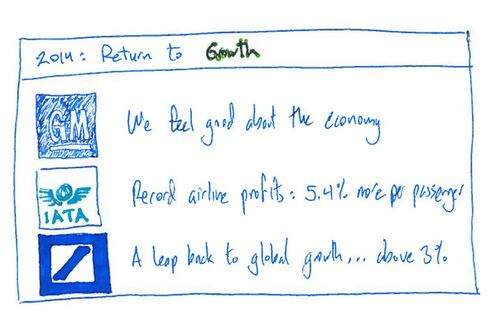 2014: Return to Growth
GM
We feel good about the economy
IATA
Record airline profits: 5.4% more per passenger
A leap back to global growth... above 3%